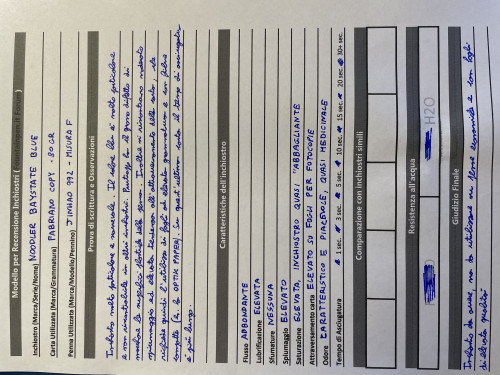 Modello per Recensione Inchiostri ( Forum)
Inchiostro (Marca/Serie/Nome) NOODLER BAYSTATE BLUE
Carta Utilizzata (Marca/Grammatura) FABRIANO COPY - 80 GR
Penna Utilizzata (Marca/Modello/Pennino) JINHAO 992 - MISURA F
Prova di scrittura e Osservazioni
Inchiostro molto particolare e .... Il colore blu è molto particolare
e non riscontrabile in altri inchiostri. Purtroppo ha il grosso difetto di
macchiare la ... ... della penna. Inoltre si riscontrano notevole
spiumaggio ed elevata tendenza all'attraversamento della carta,
richiede quindi l'utilizzo di fogli ad elevata grammatura e con fibra
compatta (es. OPTIK PAPER). Su quest'ultimo carta il tempo di asciugatura
è più lungo.
Caratteristiche dell'inchiostro
Flusso ABBONDANTE
Lubrificazione ELEVATA
Sfumature NESSUNA
Spiumaggio ELEVATO
Saturazione ELEVATA, INCHIOSTRO QUASI "ABBAGLIANTE"
Attraversamento carta ELEVATO SU FOGLI PER FOTOCOPIE
Odore CARATTERISTICO E PIACEVOLE, QUASI MEDICINALE
Tempo di Asciugatura 1 sec. 3 sec. 5 sec. 10 sec. 15 sec. 20 sec. 30+ sec.
Comparazione con inchiostri simili
Resistenza all'acqua
H2O
Giudizio Finale
Inchiostro da avere, ma da utilizzare su penne economiche e con fogli
di elevata qualità!